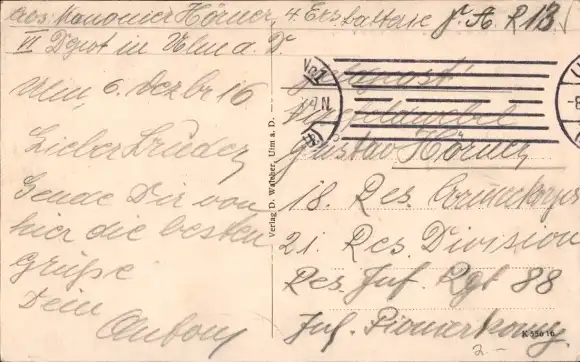 Abs. Kanonier Hörner, 4. Ers batterie F. A. R 13
VI Depot in Ulm a. D
Ulm, 6. Dezbr 16
Lieber Bruder,
Sende Dir von
hier die besten
Grüße
Dein
Verlag D. Walcher, Ulm a. D.
Feldpost
Vizefeldwebel
Gustav Hörner
18. Res. Armeekorps
21. Res. Division
Res. Inf. Rgt 88
Inf. Pionierkomp.
K 556 16
2 -